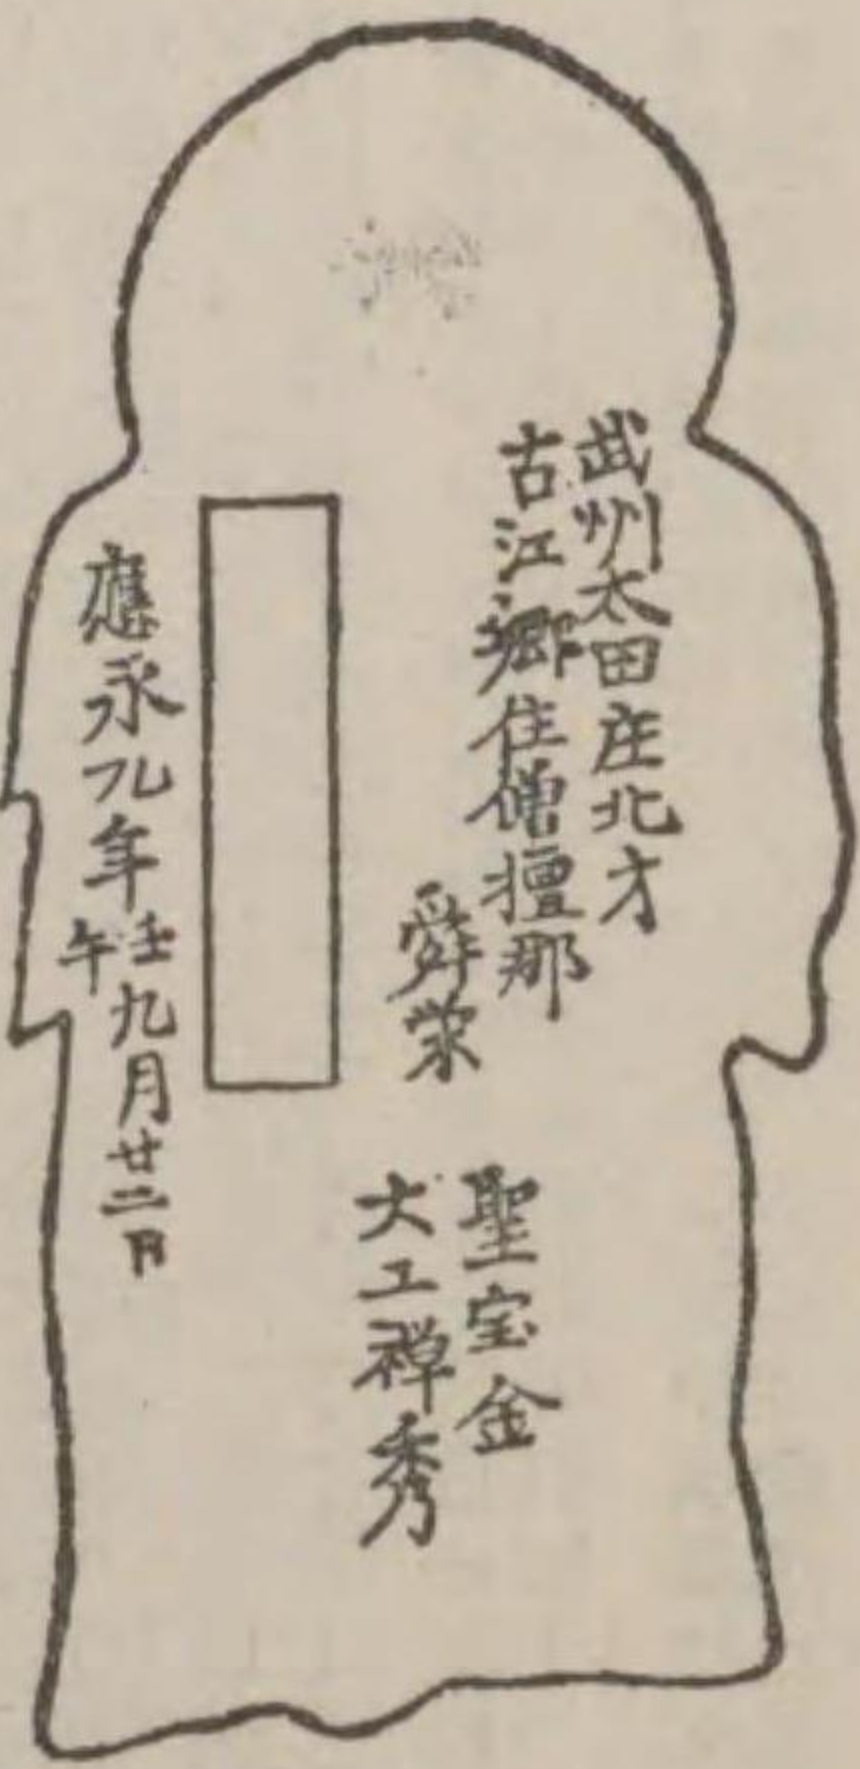 武州太田庄北方
古江郷住僧檀那
舜栄
聖宝金
大工禅秀
應永九年壬午九月廿二日